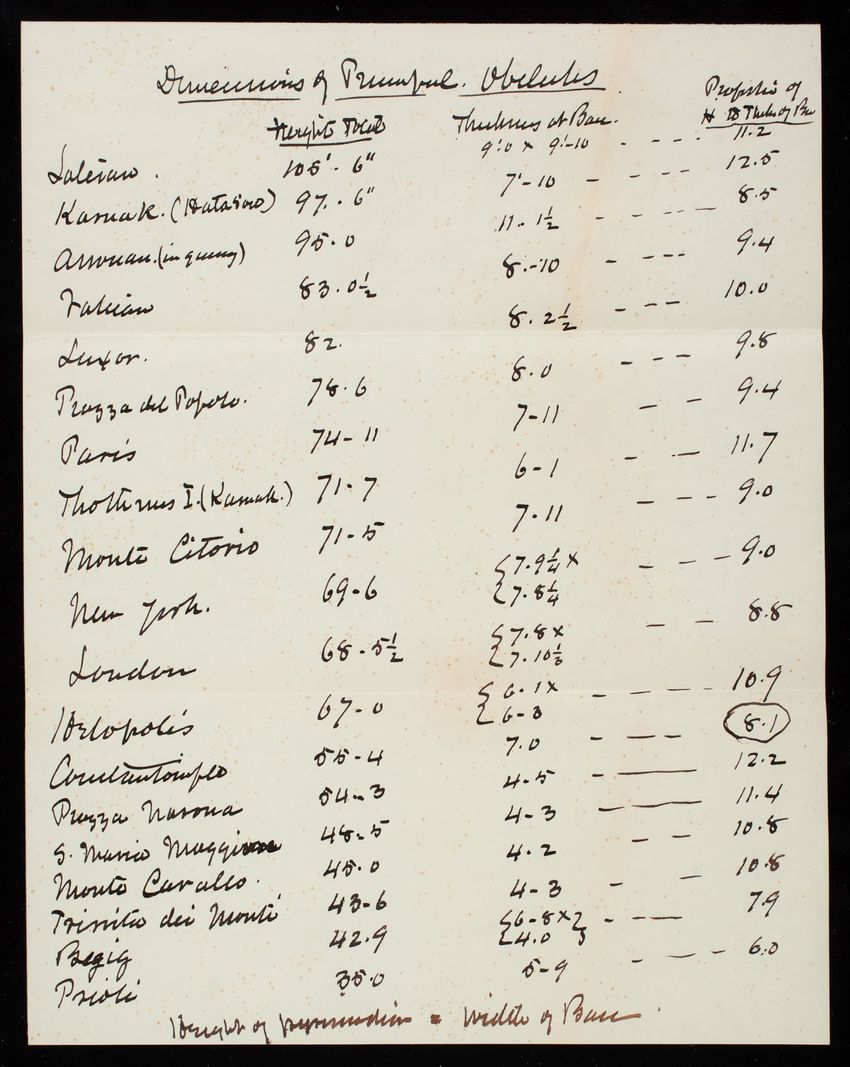 Dimensions of Principal Obelisks
Height Total Thickness at Base. Proportion of
H to Thickn. of Base
Lateran. 105'-6" 9'.0 x 9'-10 - --- 11.2
Karnak. (Hatasoo) 97.-6" 7'-10 - --- 12.5
Assouan. (in quarry) 95.0 11-1½ - ---- 8.5
Vatican 83.0½ 8.-10 - --- 9.4
Luxor. 82. 8.2½ - --- 10.0
Piazza del Popolo. 78.6 8.0 - --- 9.8
Paris 74-11 7-11 - - - 9.4
Thothmes I. (Karnak.) 71-7 6-1 - -- 11.7
Monte Citorio 71-5 7.11 - --- 9.0
New York. 69-6 {7.9¼ x
{7.8¼ - - - 9.0
London 68-5½ {7.8 x
{7.10⅓ - -- 8.8
Heliopolis 67-0 {6-1 x
{6-3 - ---- 10.9
Constantinople 55-4 7.0 - --- 8.1
Piazza Navona 54-3 4-5 - --- 12.2
S. Maria Maggiore 48-5 4-3 - --- 11.4
Monte Cavallo. 45.0 4.2 - - 10.8
Trinita dei Monti 43-6 4-3 - - 10.8
Begig 42.9 {6-8 x}
{4.0 } - --- 7.9
Prioli 35.0 5-9 - --- 6.0
Height of pyramidion = Width of Base